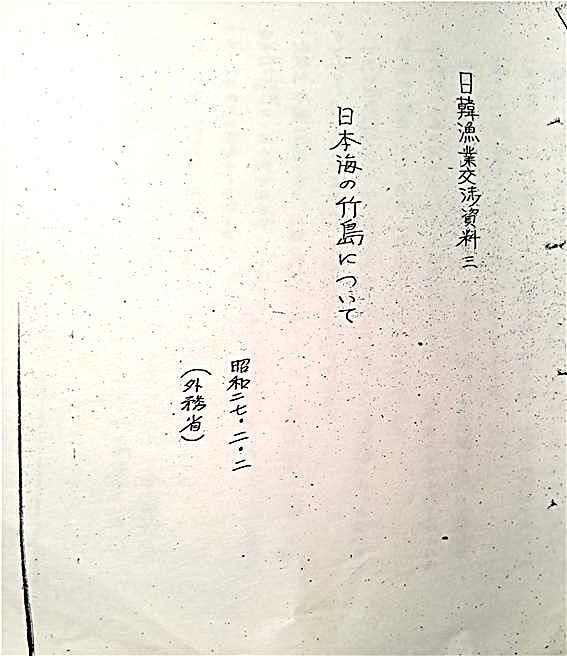 日韓漁業交渉資料三
日本海の竹島について
昭和二七・二・二
(外務省)